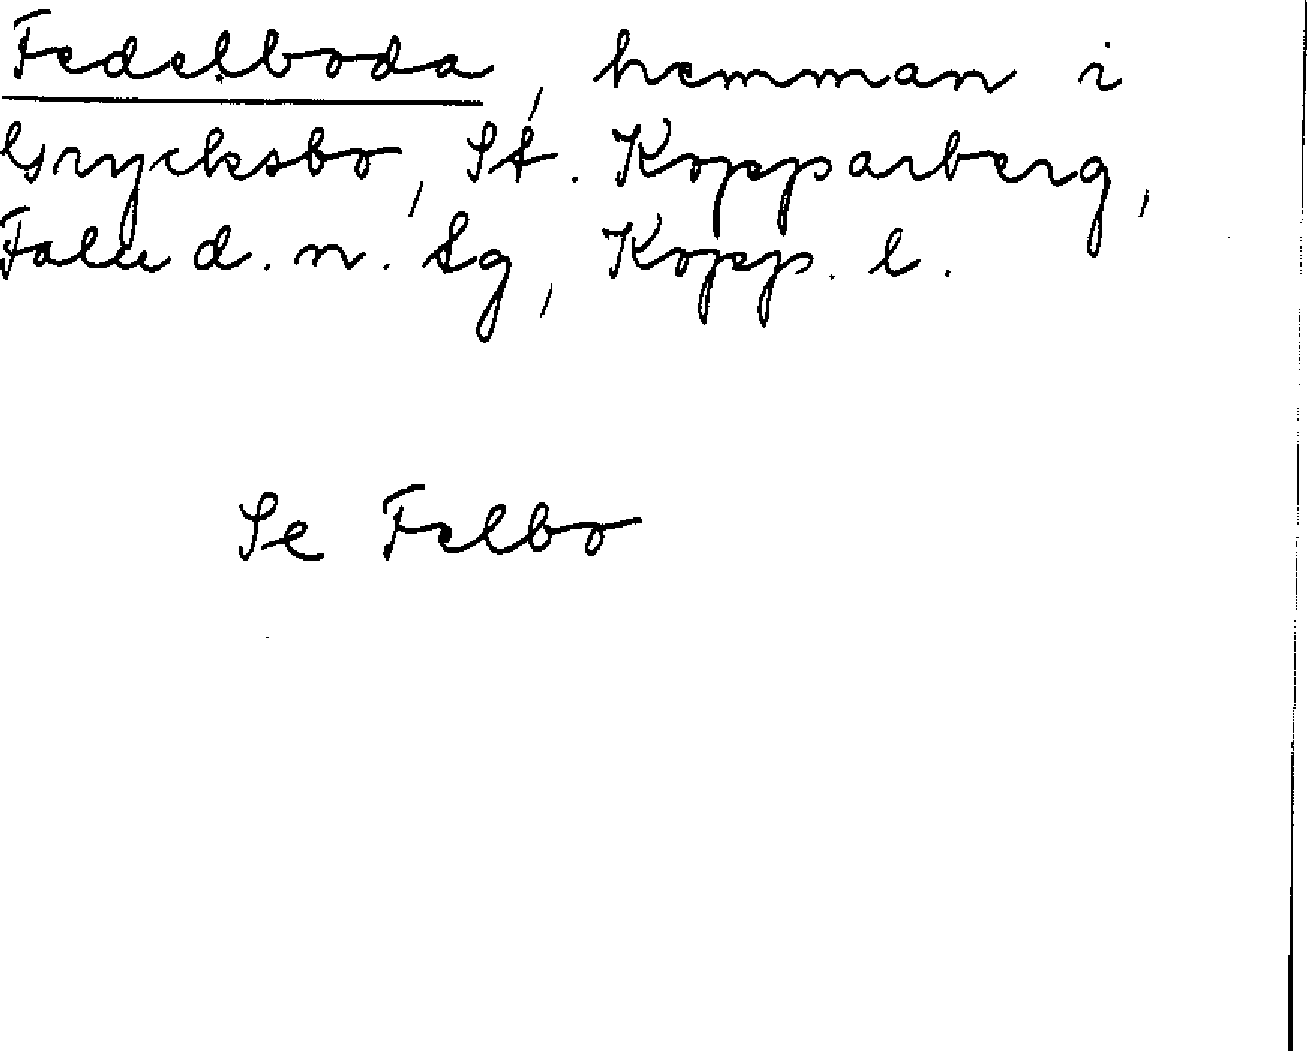 Fedelboda, hemman i
Grycksbo, St. Kopparberg,
Falu d. n. tg, Kopp. l.
Se Felbo